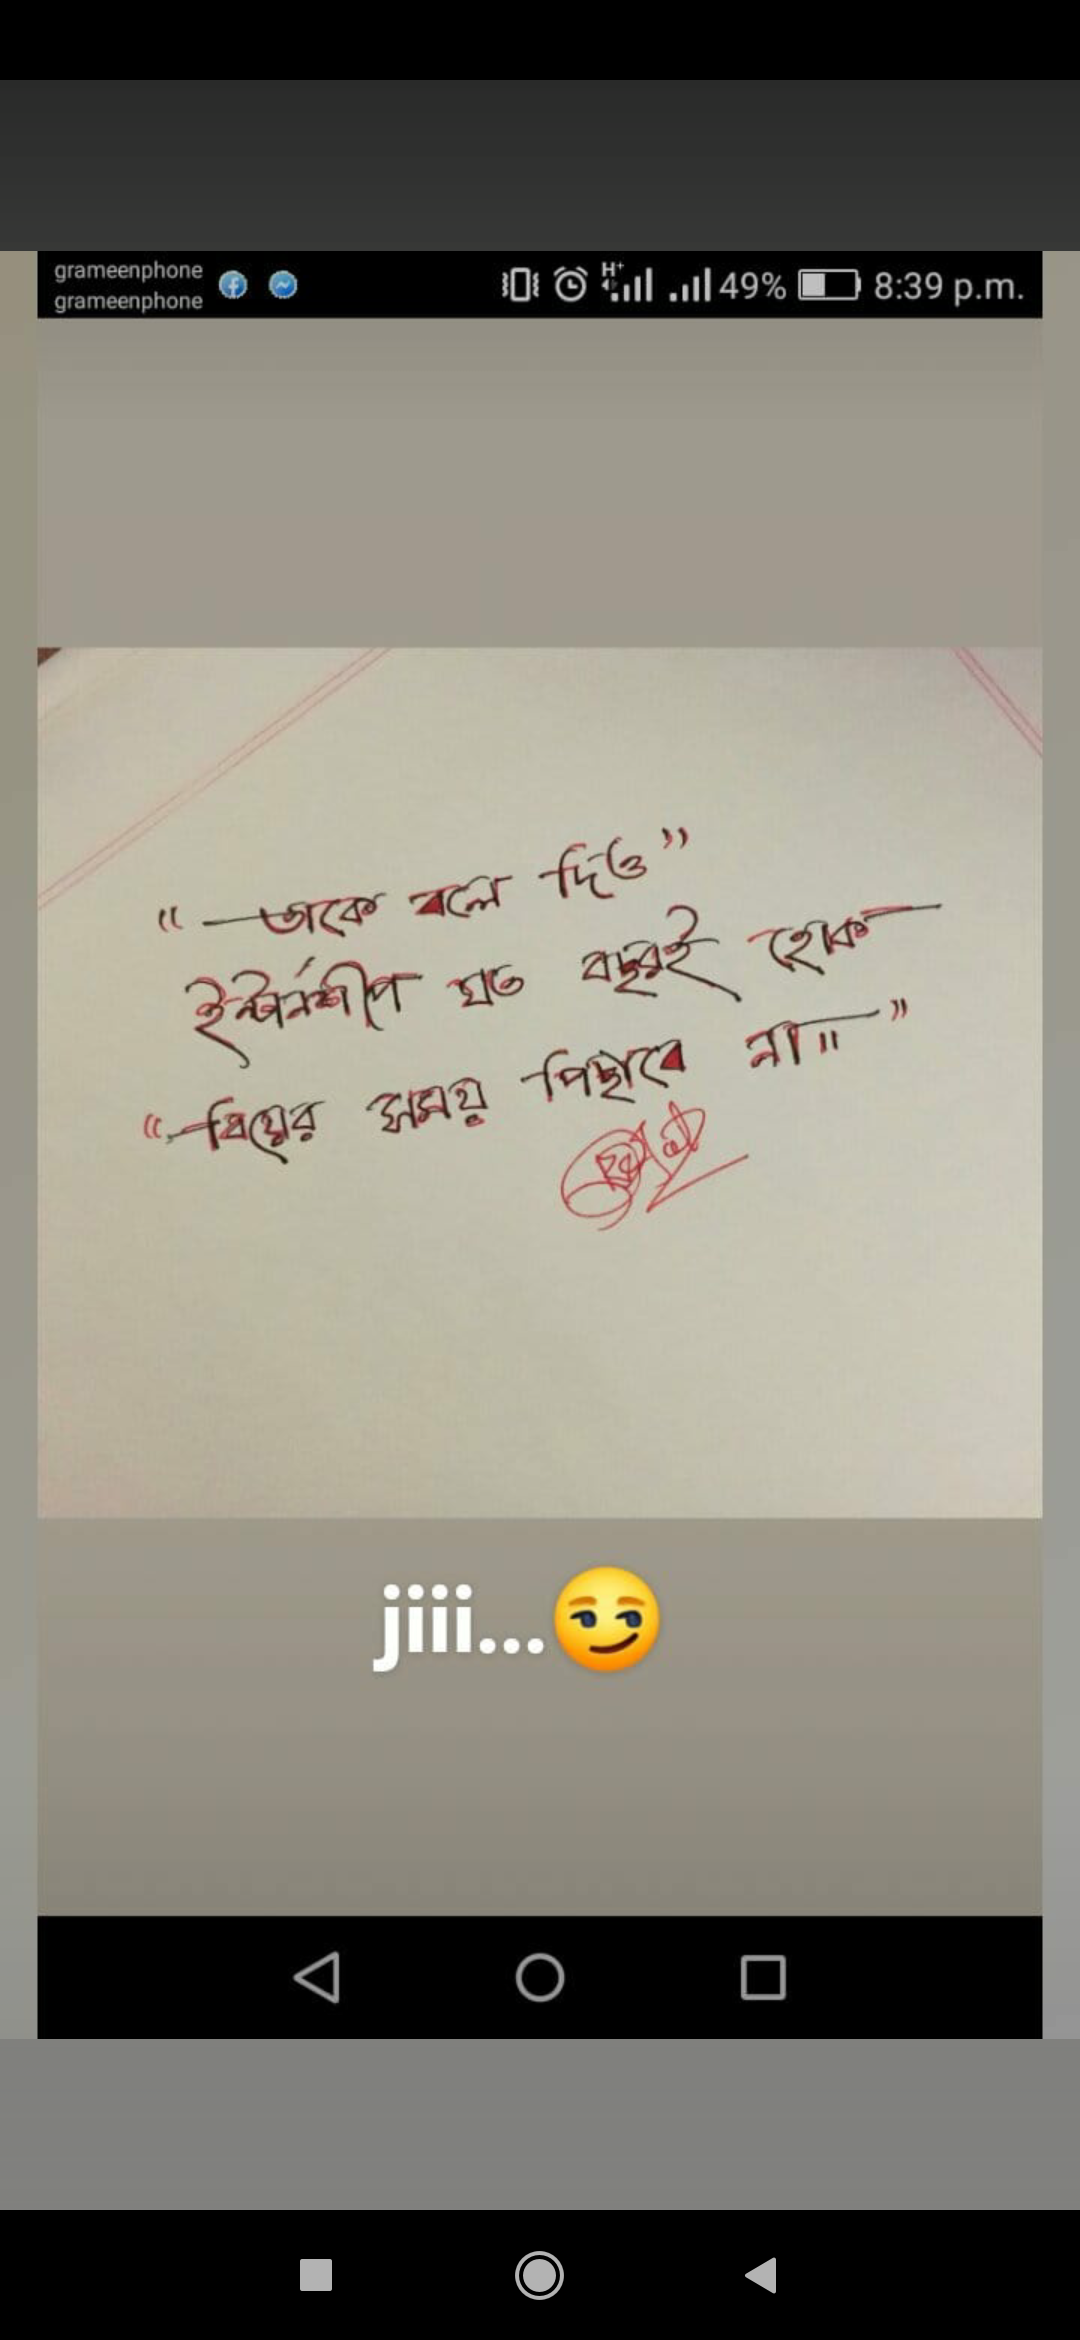 grameenphone
grameenphone
H+ 49% 8:39 p.m.
“তাকে বলে দিও”
ইন্টার্নশীপ যত বছরই হোক
“বিয়ের সময় পিছাবে না॥”
jiii...😏